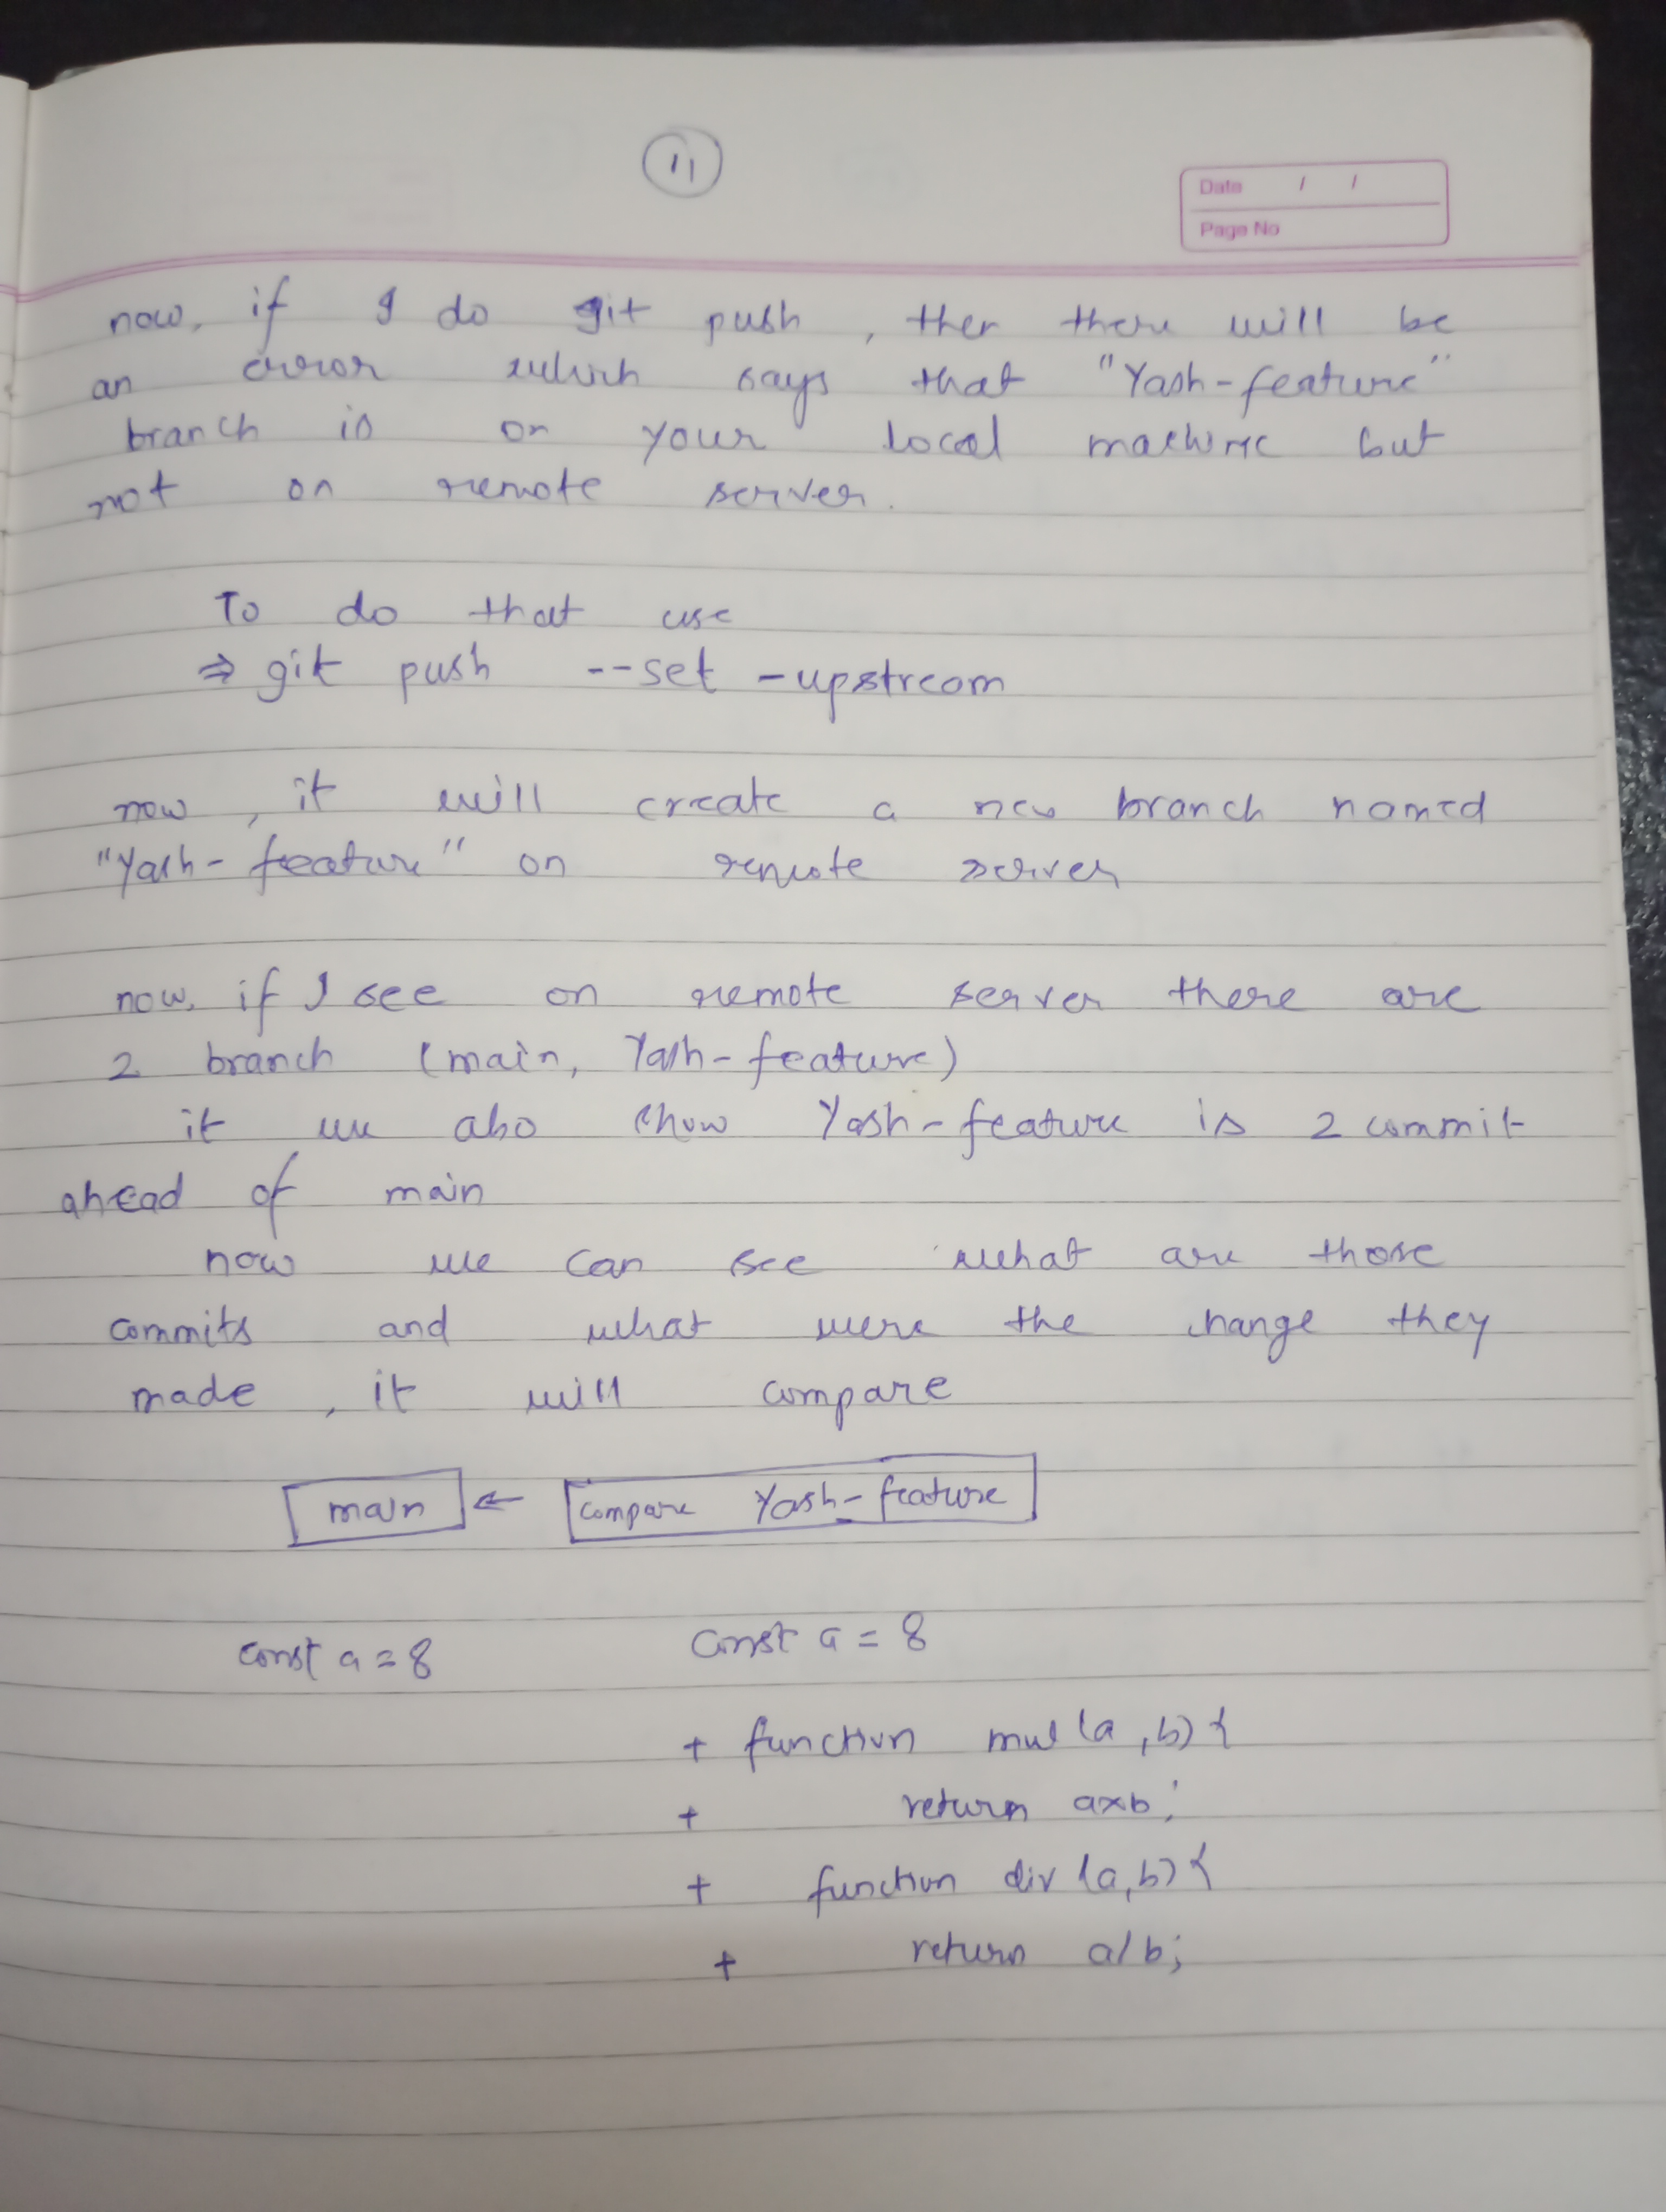 11
Date / /
Page No
now, if I do git push, then there will be
an error which says that "Yash-feature"
branch is on your local machine but
not on remote server.
To do that use
⇒ git push --set -upstream
now, it will create a new branch named
"Yash-feature" on remote server
now, if I see on remote server there are
2 branch (main, Yash-feature)
it also show Yash-feature is 2 commit
ahead of main
now we can see what are those
commits and what were the change they
made, it will compare
main ← compare Yash-feature
const a = 8 const a = 8
+ function mul (a, b) {
+ return a×b;
+ function div (a, b) {
+ return a/b;